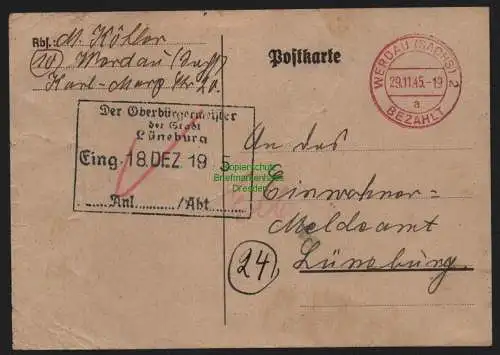 Abs.: M. Köhler
(10) Werdau (Sachs)
Karl-Marx Str 20.
Postkarte
WERDAU (SACHS) 2
29.11.45.-19
a
BEZAHLT
Der Oberbürgermeister
der Stadt
Lüneburg
Eing. 18. DEZ. 19 5
Anl........../Abt..........
Kopierschutz
Briefmarkenhaus
Dresden
An das
Einwohner-
Meldeamt
(24) Lüneburg.